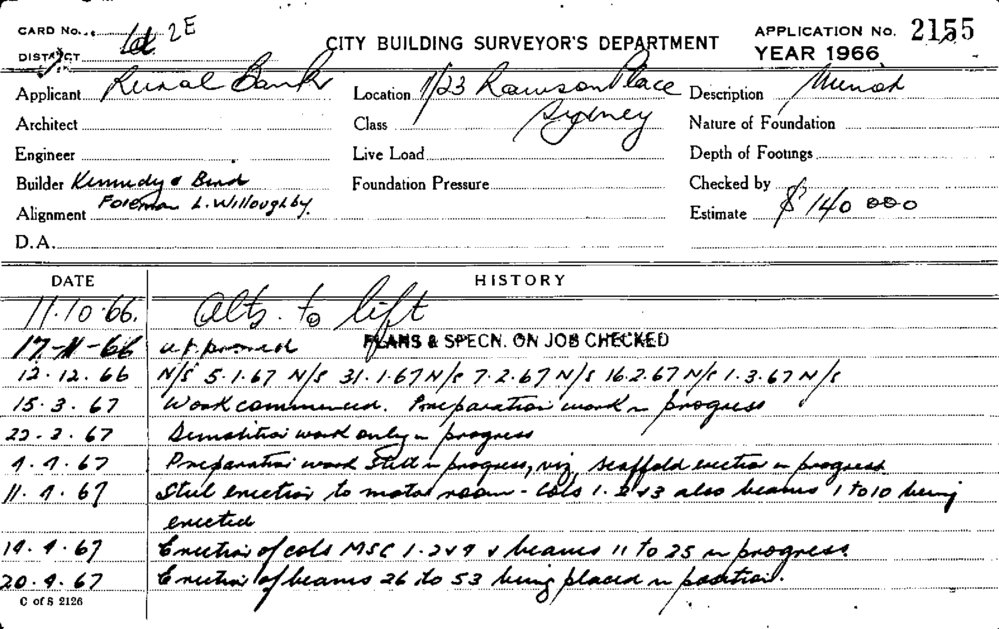 CARD No. Lot 2E
CITY BUILDING SURVEYOR'S DEPARTMENT
APPLICATION No. 2155
DISTRICT
YEAR 1966
Applicant Rural Bank Location 1/23 Rawson Place Description
Architect Class Sydney Nature of Foundation
Engineer Live Load Depth of Footings
Builder Kennedy & Bird Foundation Pressure Checked by
Alignment Foreman L. Willoughby. Estimate $ 140 000
D.A.
DATE HISTORY
11.10.66. Alts. to lift
17-11-66 PLANS & SPECN. ON JOB CHECKED
12.12.66 N/S 5.1.67 N/S 31.1.67 N/S 7.2.67 N/S 16.2.67 N/S 1.3.67 N/S
15.3.67 Work commenced. Preparation work in progress
22.3.67 Demolition work only in progress
4.4.67 Preparation work still in progress, viz, scaffold erection in progress
11.4.67 Steel erection to motor room - Cols 1.2 & 3 also beams 1 to 10 being
erected
19.4.67 Erection of cols MSC 1.2 & 4 & beams 11 to 25 in progress.
20.4.67 Erection of beams 26 to 53 being placed in position.
C of S 2126